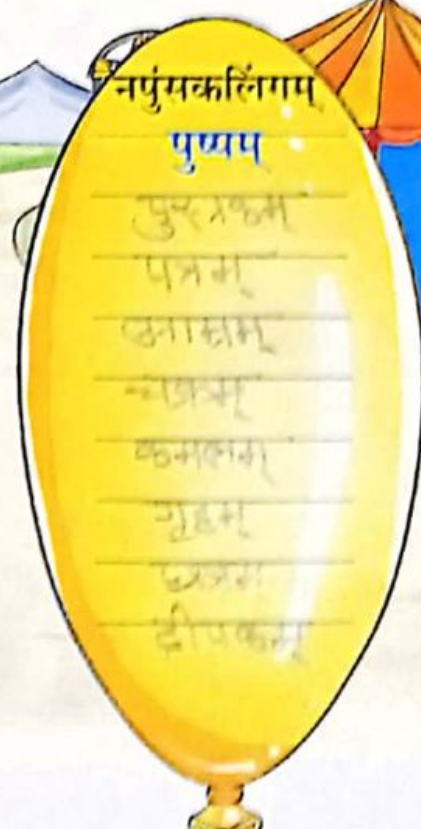 नपुंसकलिंगम्
पुष्पम्
पुस्तकम्
पत्रम्
आम्रम्
चक्रम्
कमलम्
गृहम्
छत्रम
दीपकम्